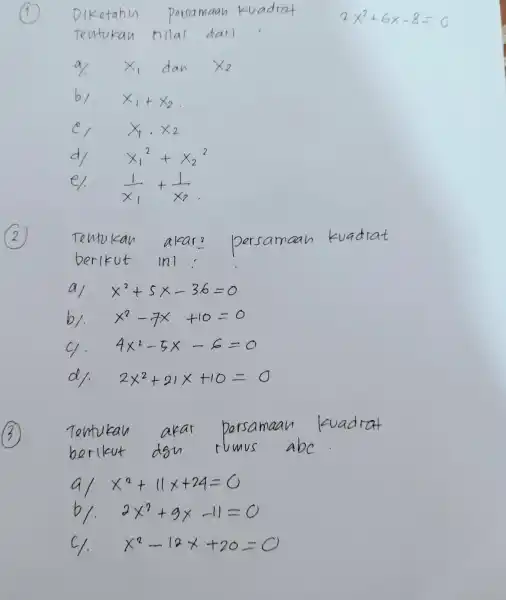 ① Diketahui persamaan kuadrat 2x² + 6x - 8 = 0
Tentukan nilai dari :
a/. x₁ dan x₂
b/. x₁ + x₂.
c/ x₁ . x₂
d/ x₁² + x₂²
e/. 1/x₁ + 1/x₂.
② Tentukan akar² persamaan kuadrat
berikut ini :
a/ x² + 5x - 36 = 0
b/. x² - 7x + 10 = 0
c/. 4x² - 5x - 6 = 0
d/. 2x² + 21x + 10 = 0
③ Tentukan akar persamaan kuadrat
berikut dgn rumus abc.
a/ x² + 11x + 24 = 0
b/. 2x² + 9x - 11 = 0
c/. x² - 12x + 20 = 0